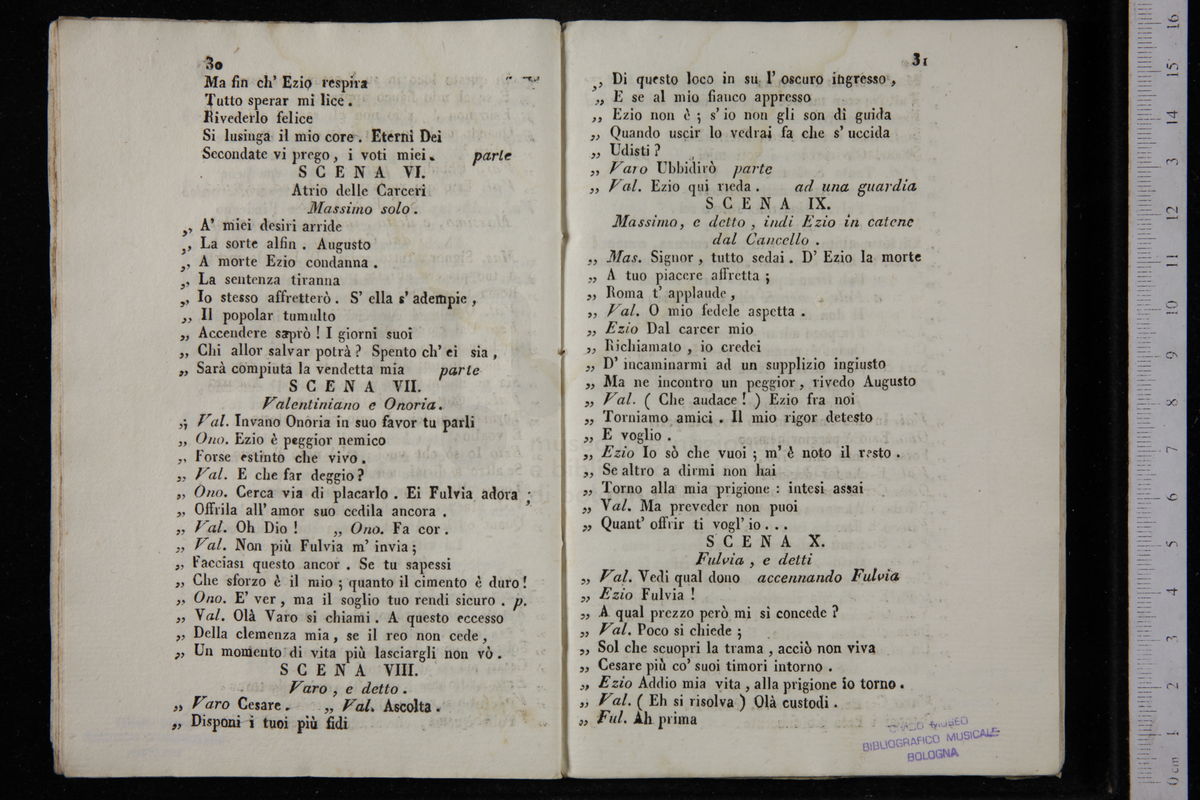 30
Ma fin ch' Ezio respira
Tutto sperar mi lice .
Rivederlo felice
Si lusinga il mio core . Eterni Dei
Secondate vi prego , i voti miei . parte
SCENA VI.
Atrio delle Carceri
Massimo solo .
,, A' miei desiri arride
,, La sorte alfin . Augusto
,, A morte Ezio condanna .
,, La sentenza tiranna
,, Io stesso affretterò . S' ella s' adempie ,
,, Il popolar tumulto
,, Accendere saprò ! I giorni suoi
,, Chi allor salvar potrà ? Spento ch' ei sia ,
,, Sarà compiuta la vendetta mia parte
SCENA VII.
Valentiniano e Onoria .
,, Val. Invano Onoria in suo favor tu parli
,, Ono. Ezio è peggior nemico
,, Forse estinto che vivo .
,, Val. E che far deggio ?
,, Ono. Cerca via di placarlo . Ei Fulvia adora ;
,, Offrila all' amor suo cedila ancora .
,, Val. Oh Dio ! ,, Ono. Fa cor .
,, Val. Non più Fulvia m' invia ;
,, Facciasi questo ancor . Se tu sapessi
,, Che sforzo è il mio ; quanto il cimento è duro !
,, Ono. E' ver , ma il soglio tuo rendi sicuro . p.
,, Val. Olà Varo si chiami . A questo eccesso
,, Della clemenza mia , se il reo non cede ,
,, Un momento di vita più lasciargli non vò .
SCENA VIII.
Varo , e detto .
,, Varo Cesare . ,, Val. Ascolta .
,, Disponi i tuoi più fidi
31
,, Di questo loco in su l' oscuro ingresso ,
,, E se al mio fianco appresso
,, Ezio non è ; s' io non gli son di guida
,, Quando uscir lo vedrai fa che s' uccida
,, Udisti ?
,, Varo Ubbidirò parte
,, Val. Ezio qui rieda . ad una guardia
SCENA IX.
Massimo , e detto , indi Ezio in catene
dal Cancello .
,, Mas. Signor , tutto sedai . D' Ezio la morte
,, A tuo piacere affretta ;
,, Roma t' applaude ,
,, Val. O mio fedele aspetta .
,, Ezio Dal carcer mio
,, Richiamato , io credei
,, D' incaminarmi ad un supplizio ingiusto
,, Ma ne incontro un peggior , rivedo Augusto
,, Val. ( Che audace ! ) Ezio fra noi
,, Torniamo amici . Il mio rigor detesto
,, E voglio .
,, Ezio Io sò che vuoi ; m' è noto il resto .
,, Se altro a dirmi non hai
,, Torno alla mia prigione : intesi assai
,, Val. Ma preveder non puoi
,, Quant' offrir ti vogl' io . . .
SCENA X.
Fulvia , e detti
,, Val. Vedi qual dono accennando Fulvia
,, Ezio Fulvia !
,, A qual prezzo però mi si concede ?
,, Val. Poco si chiede ;
,, Sol che scuopri la trama , acciò non viva
,, Cesare più co' suoi timori intorno .
,, Ezio Addio mia vita , alla prigione io torno .
,, Val. ( Eh si risolva ) Olà custodi .
,, Ful. Ah prima
CIVICO MUSEO
BIBLIOGRAFICO MUSICALE
BOLOGNA
0 cm 1 2 3 4 5 6 7 8 9 10 11 12 13 14 15 16